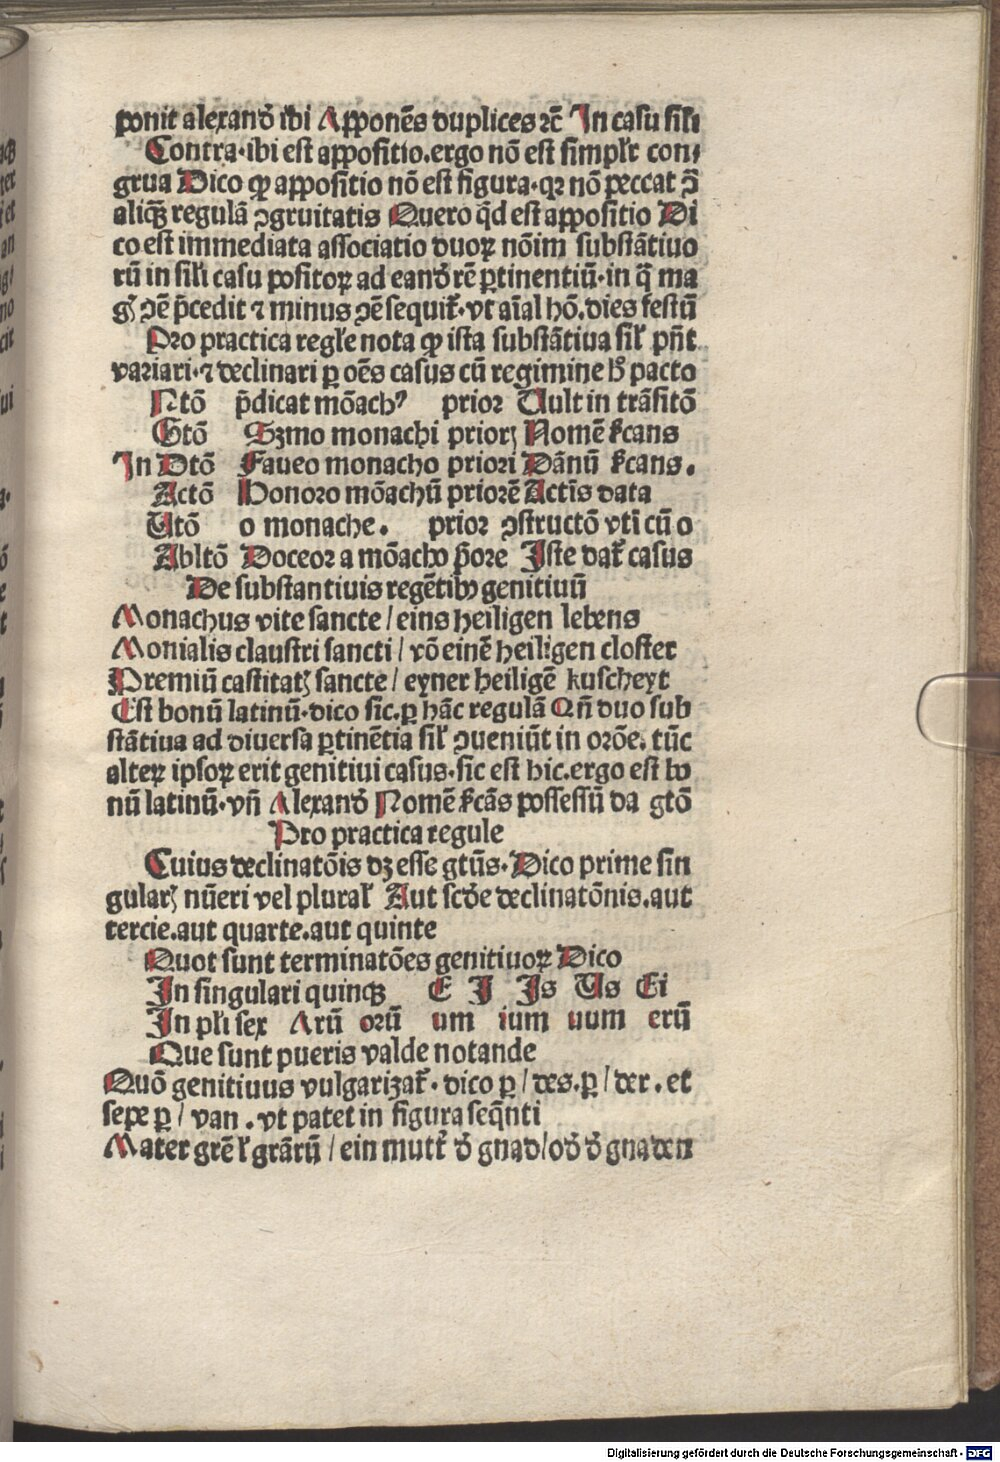 ponit alexanđ ibi Apponēs duplices ⁊c̄ In casu sil̄i
Contra·ibi est appositio.ergo nō est simpl̄r con⸗
grua Dico ꝙ appositio nō est figura·qꝛ nō peccat ꝯ̄
aliqꝫ regulā ꝯgruitatis Quero q̄d est appositio Di
co est immediata associatio duoꝝ nōim substātiuo
rū in sil̄i casu positoꝝ ad eanđ rē ꝑtinentiū·in q̄ ma
gꝭ ꝯē p̄cedit ⁊ minus ꝯē sequit̄·vt aīal hō.dies festū
Pro practica regl̄e nota ꝙ ista substātiua sil̄ pn̄t
variari·⁊ declinari ꝑ oēs casus cū regimine hꝰ pacto
Ntō p̄dicat mōachꝰ prior Vult in trāsitō
Gtō Sꝫmo monachi priorꝭ Nomē s̄cans
In Dtō Faueo monacho priori Dānū s̄cans.
Actō Honoro mōachū priorē Actīs data
Vtō o monache. prior ꝯstructō vti cū o
Abltō Doceor a mōacho p̄ore Iste dat̄ casus
De substantiuis regētibꝰ genitiuū
Monachus vite sancte / eins heiligen lebens
Monialis claustri sancti / vō einē heiligen closter
Premiū castitatꝭ sancte / eyner heiligē kuscheyt
Est bonū latinū·dico sic.ꝑ hāc regulā Qn̄ duo sub
stātiua ad diuersa ꝑtinētia sil̄ ꝯueniūt in orōe. tūc
alteꝝ ipsoꝝ erit genitiui casus·sic est hic.ergo est bo
nū latinū·vn̄ Alexanđ Nomē s̄cās possessū da gtō
Pro practica regule
Cuius declinatōis dꝫ esse gtūs. Dico prime sin
gularꝭ nūeri vel plural̄ Aut scđe declinatōnis.aut
tercie.aut quarte.aut quinte
Quot sunt terminatōes genitiuoꝝ Dico
In singulari quinqꝫ E I Is Us Ei
In pl̄i sex Arū orū um ium uum erū
Que sunt pueris valde notande
Quō genitiuus vulgarizat̄ · dico ꝑ / des.ꝑ / der . et
sepe ꝑ / van . vt patet in figura seq̄nti
Mater grē l̄ grārū / ein mutt̄ đ gnad / ođ đ gnaden
Digitalisierung gefördert durch die Deutsche Forschungsgemeinschaft - DFG